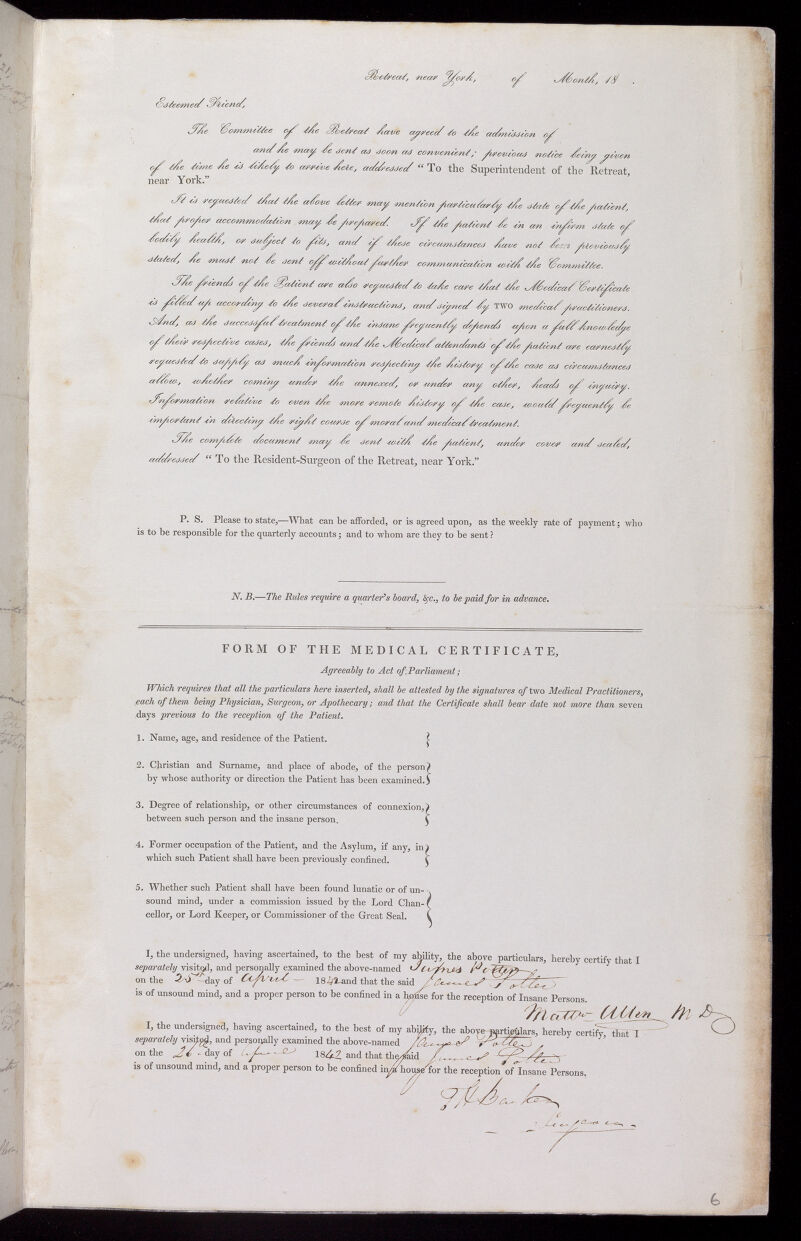 Retreat, near York, of Month, 18 .
Esteemed Friend,
The Committee of the Retreat have agreed to the admission of
and he may be sent as soon as convenient; previous notice being given
of the time he is likely to arrive here, addressed "To the Superintendent of the Retreat,
near York."
It is requested that the above letter may mention particularly the state of the patient,
that proper accommodation may be prepared. If the patient be in an infirm state of
bodily health, or subject to fits, and if these circumstances have not been previously
stated, he must not be sent off without further communication with the Committee.
The friends of the Patient are also requested to take care that the Medical Certificate
is filled up according to the several instructions, and signed by TWO medical practitioners.
And, as the successful treatment of the insane frequently depends upon a full knowledge
of their respective cases, the friends and the Medical attendants of the patient are earnestly
requested to supply as much information respecting the history of the case as circumstances
allow, whether coming under the annexed, or under any other, heads of inquiry.
Information relative to even the more remote history of the case, would frequently be
important in directing the right course of moral and medical treatment.
The complete document may be sent with the patient, under cover and sealed,
addressed "To the Resident-Surgeon of the Retreat, near York."
P. S. Please to state,—What can be afforded, or is agreed upon, as the weekly rate of payment; who
is to be responsible for the quarterly accounts; and to whom are they to be sent?
N. B.—The Rules require a quarter's board, &c., to be paid for in advance.
FORM OF THE MEDICAL CERTIFICATE,
Agreeably to Act of Parliament;
Which requires that all the particulars here inserted, shall be attested by the signatures of two Medical Practitioners,
each of them being Physician, Surgeon, or Apothecary; and that the Certificate shall bear date not more than seven
days previous to the reception of the Patient.
1. Name, age, and residence of the Patient.
2. Christian and Surname, and place of abode, of the person
by whose authority or direction the Patient has been examined.
3. Degree of relationship, or other circumstances of connexion,
between such person and the insane person.
4. Former occupation of the Patient, and the Asylum, if any, in
which such Patient shall have been previously confined.
5. Whether such Patient shall have been found lunatic or of un-
sound mind, under a commission issued by the Lord Chan-
cellor, or Lord Keeper, or Commissioner of the Great Seal.
I, the undersigned, having ascertained, to the best of my ability, the above particulars, hereby certify that I
separately visited, and personally examined the above-named James Potter
on the 25th day of April 1842 and that the said James Potter
is of unsound mind, and a proper person to be confined in a house for the reception of Insane Persons.
Matthw Allen M D
I, the undersigned, having ascertained, to the best of my ability, the above particulars, hereby certify, that I
separately visited, and personally examined the above-named James Potter
on the 26th day of April 1842 and that the said James Potter
is of unsound mind, and a proper person to be confined in a house for the reception of Insane Persons.
Barker
Surgeon
6